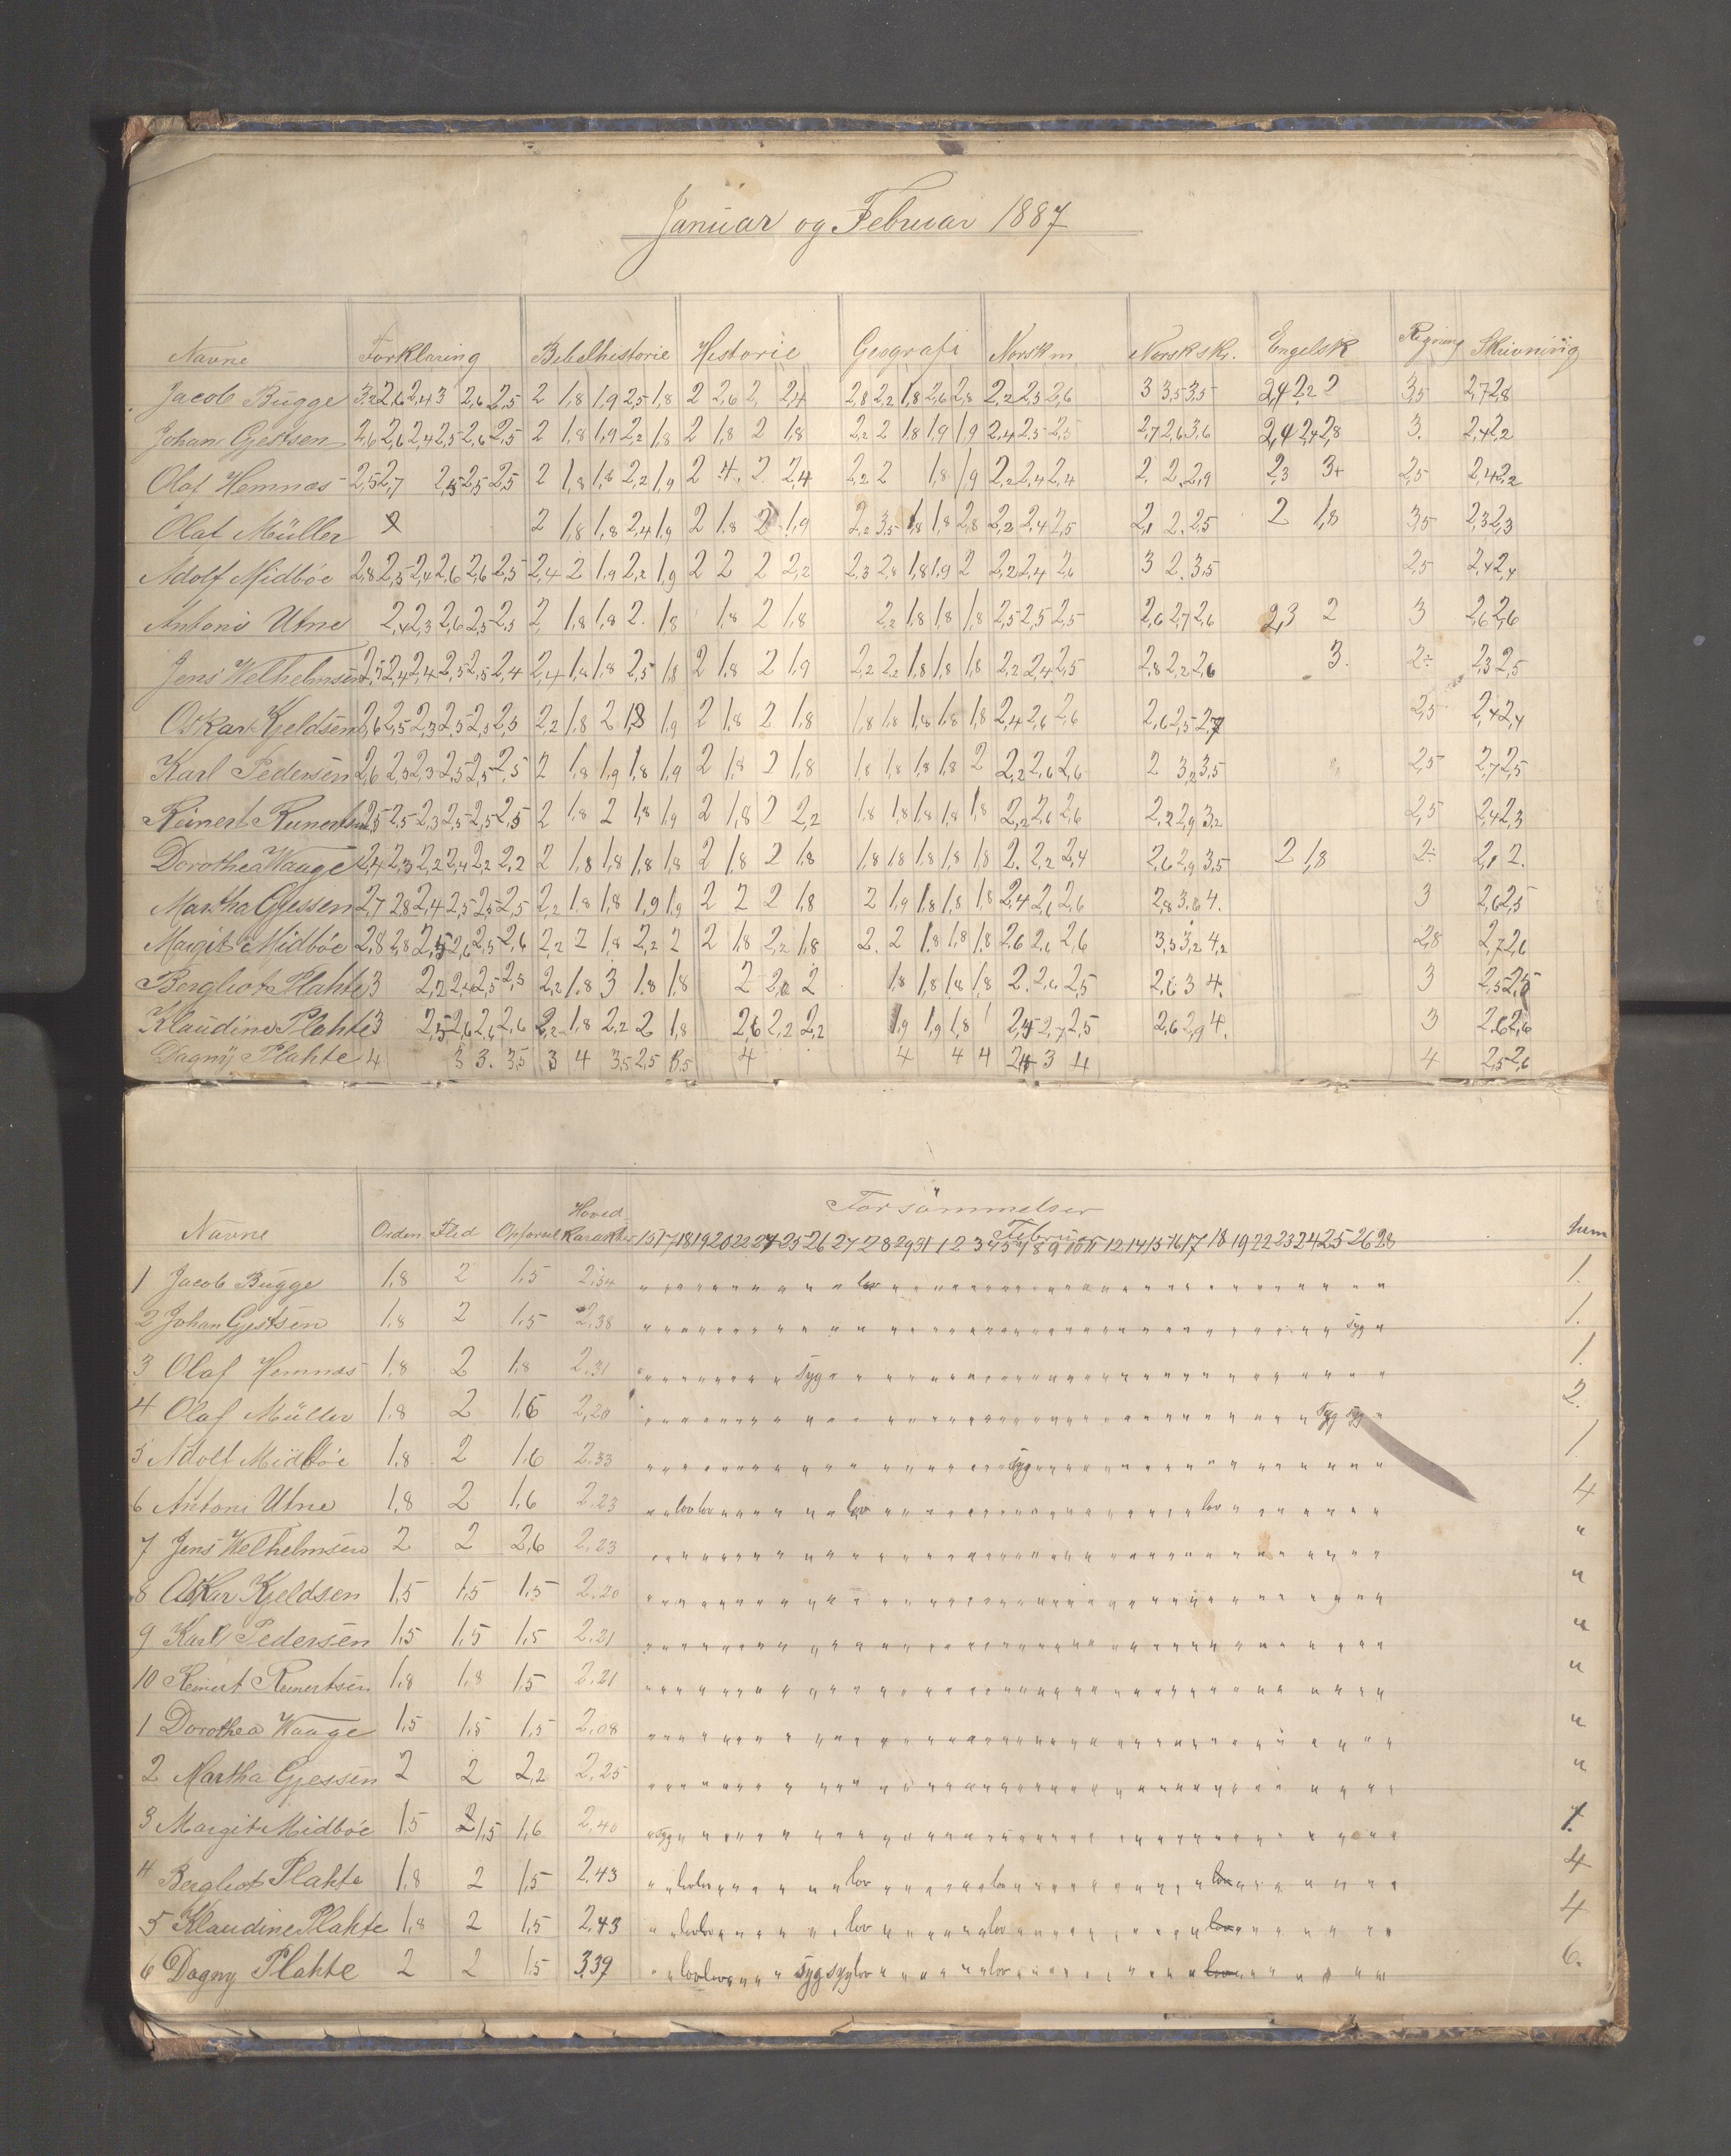 Januar og Februar 1887
Navne Forklaring Bibelhistorie Historie Geografi Norsk m Norsk skr. Engelsk Regning Skrivning
Jacob Bugge 3,2 2,6 2,4 3 2,6 2,5 2 1,8 1,9 2,5 1,8 2 2,6 2, 2,4 2,8 2,2 1,8 2,6 2,8 2,2 2,3 2,6 3 3,5 3,5 2,4 2,2 2 3,5 2,7 2,8
Johan Gjestsen 2,6 2,6 2,4 2,5 2,6 2,5 2 1,8 1,9 2,2 1,8 2 1,8 2 1,8 2,2 2 1,8 1,9 1,9 2,4 2,5 2,5 2,7 2,6 3,6 2,4 2,4 2,8 3. 2,4 2,2
Olaf Hemnæs 2,5 2,7 2,5 2,5 2,5 2 1,8 1,8 2,2 1,9 2 4. 2. 2,4 2,2 2 1,8 1,9 2,2 2,4 2,4 2. 2. 2,9 2,3 3+ 2,5 2,4 2,2
Olaf Müller 2 1,8 1,8 2,4 1,9 2 1,8 2 1,9 2,2 3,5 1,8 1,8 2,8 2,2 2,4 2,5 2,1 2. 2,5 2 1,8 3,5 2,3 2,3
Adolf Midböe 2,8 2,5 2,4 2,6 2,6 2,5 2,4 2 1,9 2,2 1,9 2 2 2 2,2 2,3 2,8 1,8 1,9 2 2,2 2,4 2,6 3 2. 3,5 2,5 2,4 2,4
Antoni Utne 2,4 2,3 2,6 2,5 2,5 2, 1,8 1,8 2. 1,8 1,8 2 1,8 2,2 1,8 1,8 1,8 2,5 2,5 2,5 2,6 2,7 2,6 2,3 2 3 2,6 2,6
Jens Welhelmsen 2,5 2,4 2,4 2,5 2,5 2,4 2,4 1,8 1,8 2,5 1,8 2 1,8 2 1,9 2,2 2,2 1,8 1,8 1,8 2,2 2,4 2,5 2,8 2,2 2,6 3. 2÷ 2,3 2,5
Oskar Kjeldsen 2,6 2,5 2,3 2,5 2,5 2,5 2,2 1,8 2 1,8 1,9 2 1,8 2 1,8 1,8 1,8 1,8 1,8 1,8 2,4 2,6 2,6 2,6 2,5 2,7 2,5 2,4 2,4
Karl Pedersen 2,6 2,5 2,3 2,5 2,5 2,5 2 1,8 1,9 1,8 1,9 2 1,8 2 1,8 1,8 1,8 1,8 1,8 2 2,2 2,6 2,6 2 3,2 3,5 2,5 2,7 2,5
Reinert Reinertsen 2,5 2,5 2,3 2,5 2,5 2,5 2 1,8 2 1,8 1,9 2 1,8 2 2,2 1,8 1,8 1,8 1,8 1,8 2,2 2,6 2,6 2,2 2,9 3,2 2,5 2,4 2,3
Dorothea Waage 2,4 2,3 2,2 2,4 2,2 2,2 2 1,8 1,8 1,8 1,8 2 1,8 2 1,8 1,8 1,8 1,8 1,8 1,8 2. 2,2 2,4 2,6 2,9 3,5 2 1,8 2÷ 2,1 2.
Martha Gjessen 2,7 2,8 2,4 2,5 2,5 2,5 2,2 1,8 1,8 1,9 1,9 2 2 2 1,8 2 1,9 1,8 1,8 1,8 2,4 2,6 2,6 2,8 3,64. 3 2,6 2,5
Margit Midböe 2,8 2,8 2,5 2,6 2,5 2,6 2,2 2 1,8 2,2 2 2 1,8 2,2 1,8 2. 2 1,8 1,8 1,8 2,6 2,6 2,6 3,3 3,2 4,2 2,8 2,7 2,6
Bergliot Plahte 3 2,2 2,4 2,5 2,5 2,2 1,8 3 1,8 1,8 2 2,2 2 1,8 1,8 1,8 1,8 2. 2,6 2,5 2,6 3 4. 3 2,5 2,5
Klaudine Plahte 3 2,5 2,6 2,6 2,6 2,2 1,8 2,2 2 1,8 2,6 2,2 2,2 1,9 1,9 1,8 2,5 2,7 2,5 2,6 2,9 4. 3 2,6 2,6
Dagny Plahte 4 3 3. 3,5 3 4 3,5 2,5 4 4 4 4 3 4 4 2,5 2,6
Forsömmelser
Navne Orden Flid Opförsel Hoved Karakter Februar Sum
15 17 18 19 20 22 24 25 26 27 28 29 31 1 2 3 4 5 7 8 9 10 11 12 14 15 16 17 18 19 22 23 24 25 26 28
1 Jacob Bugge 1,8 2 1,5 2,54 lov 1.
2 Johan Gjestsen 1,8 2 1,5 2,38 syg 1.
3 Olaf Hemnæs 1,8 2 1,8 2,31 syg 1.
4 Olaf Müller 1,8 2 1,6 2,20 syg syg 2.
5 Adolf Midböe 1,8 2 1,6 2,33 syg 1
6 Antoni Utne 1,8 2 1,6 2,23 lov lov lov lov 4
7 Jens Welhelmsen 2 2 2,6 2,23 "
8 Oskar Kjeldsen 1,5 1,5 1,5 2,20 "
9 Karl Pedersen 1,5 1,5 1,5 2,21 "
10 Reinert Reinertsen 1,8 1,8 1,5 2,21 "
1 Dorothea Waage 1,5 1,5 1,5 2,08 "
2 Martha Gjessen 2 2 2,2 2,25 "
3 Margit Midböe 1,5 1,5 1,6 2,40 syg 1.
4 Bergliot Plahte 1,8 2 1,5 2,43 lov lov lov lov lov 4
5 Klaudine Plahte 1,8 2 1,5 2,43 lov lov lov lov lov 4
6 Dagny Plahte 2 2 1,5 3,39 lov lov syg syg lov lov lov 6.